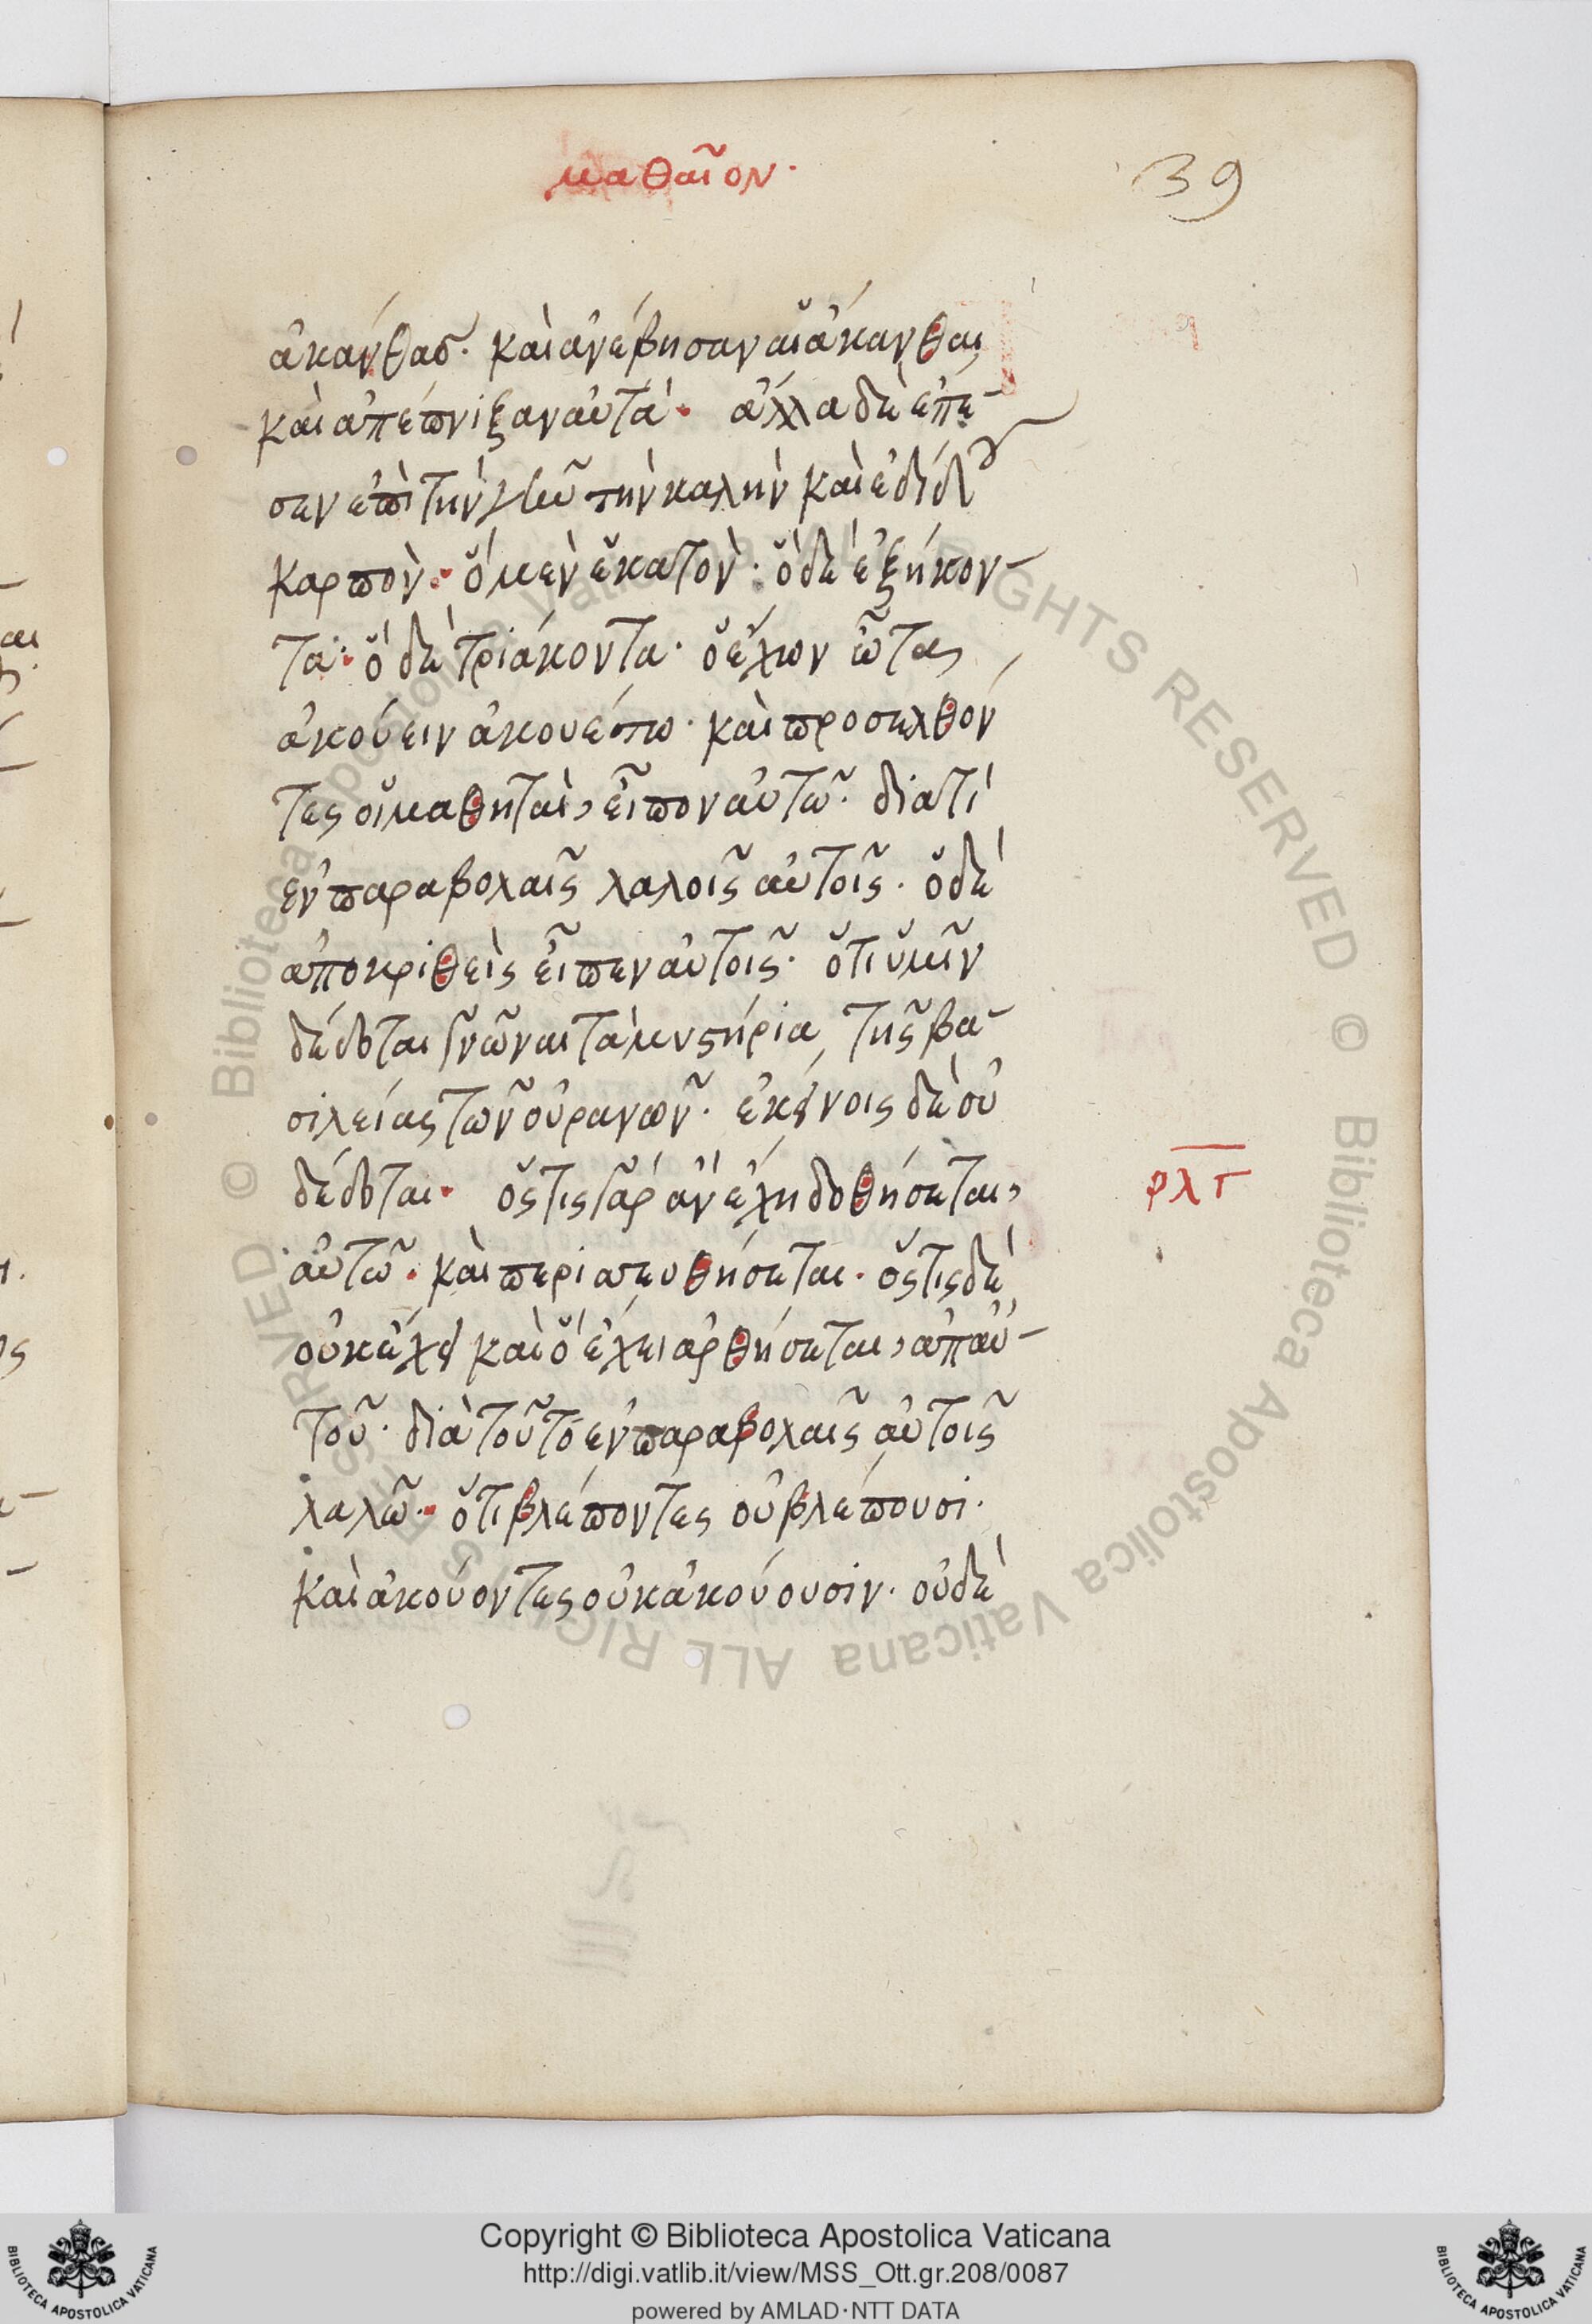 μαθαῖον·
39
ἀκάνθας· καὶ ἀνέβησαν αἵ ἄκανθαι
καὶ ἀπέπνιξαν αὐτά· ἄλλα δὲ ἐπε-
σεν ἐπὶ τὴν γῆν τὴν καλὴν καὶ ἐδίδου
καρπὸν· ὅ μὲν ἕκατὸν· ὅ δὲ ἑξήκον-
τα· ὅ δὲ τριάκοντα· ὅ ἔχων ὦτα
ἀκούειν ἀκουέτω· καὶ προσελθόν
τες οἵ μαθηταὶ, εἶπον αὐτῶ· διατί
ἐν παραβολαῖς λαλοῖς αὐτοῖς· ὅ δὲ
ἀποκριθεὶς εἶπεν αὐτοῖς· ὅτι ὕμῖν
δέδοται γνῶναι τὰ μυστήρια τῆς βα-
σιλείας τῶν οὐρανῶν· ἐκείνοις δὲ οὐ
δέδοται· ὅστις γὰρ ἂν ἔχη δοθήσεται,
αὐτῶ· καὶ περισευθήσεται· ὅστις δὲ
οὐκ ἔχει καὶ ὅ ἔχει ἀρθήσεται, ἀπ αὐ-
τοῦ· διὰ τοῦτο ἐν παραβολαῖς αὐτοῖς
λαλῶ· ὅτι βλέποντες οὐ βλέπουσι·
καὶ ἀκούοντες οὐκ ἀκούουσιν· οὐδὲ
ρλγ
© Biblioteca Apostolica Vaticana ALL RIGHTS RESERVED
Copyright © Biblioteca Apostolica Vaticana
http://digi.vatlib.it/view/MSS_Ott.gr.208/0087
powered by AMLAD·NTT DATA
BIBLIOTECA APOSTOLICA VATICANA
BIBLIOTECA APOSTOLICA VATICANA